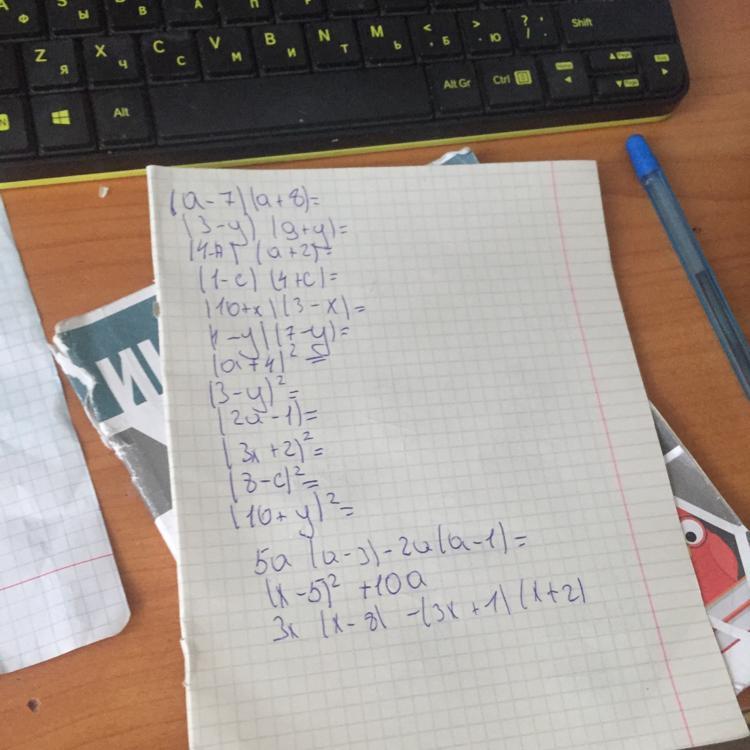 Ф Ы В А П
Z Я X Ч C С V М B И N Т M Ь < , Б > . Ю ? / Shift
Alt Alt Gr Ctrl
(a-7)(a+8)=
(3-y) (9+y)=
(a+2)=
(1-c) (4+c)=
(10+x)(3-x)=
-y)(7-y)=
(a+4)²=
(3-y)²=
(2a-1)=
(3x+2)²=
(8-c)²=
(10+y)²=
5a (a-3)-2a(a-1)=
(x-5)² +10a
3x (x-8) -(3x+1)(x+2)